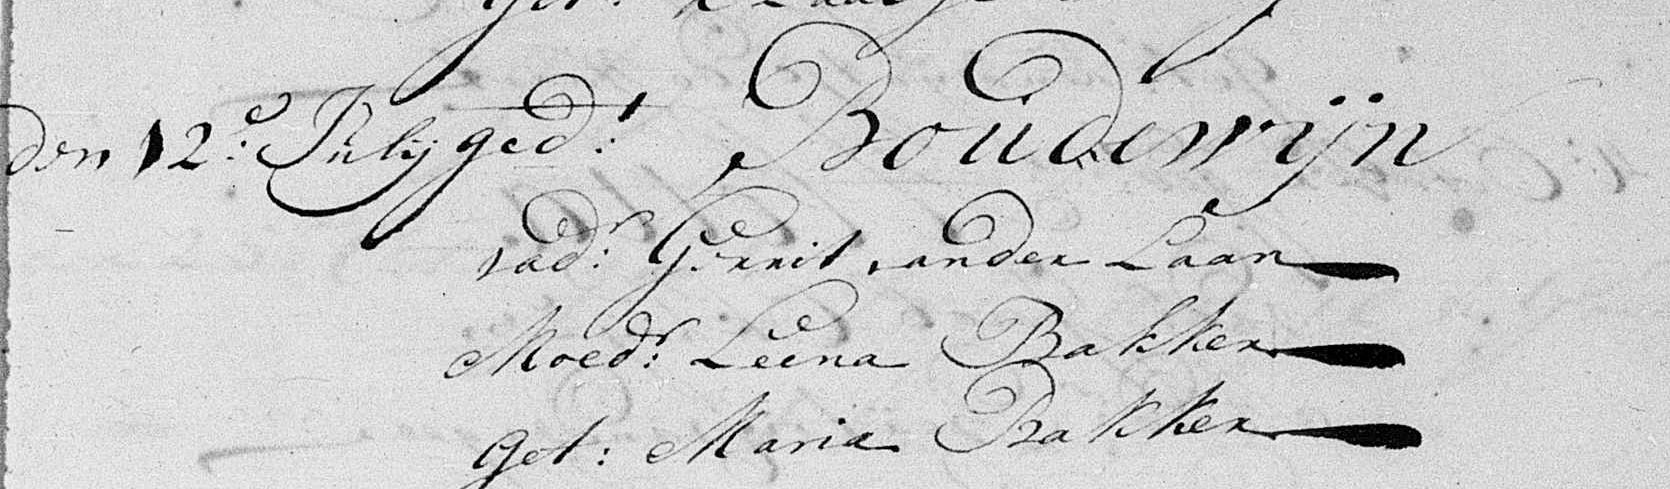 get:
den 12e: Julij ged: Boudewijn
vadr: Gerrit vander Laan
Moedr: Leena Bakker
get: Maria Bakker